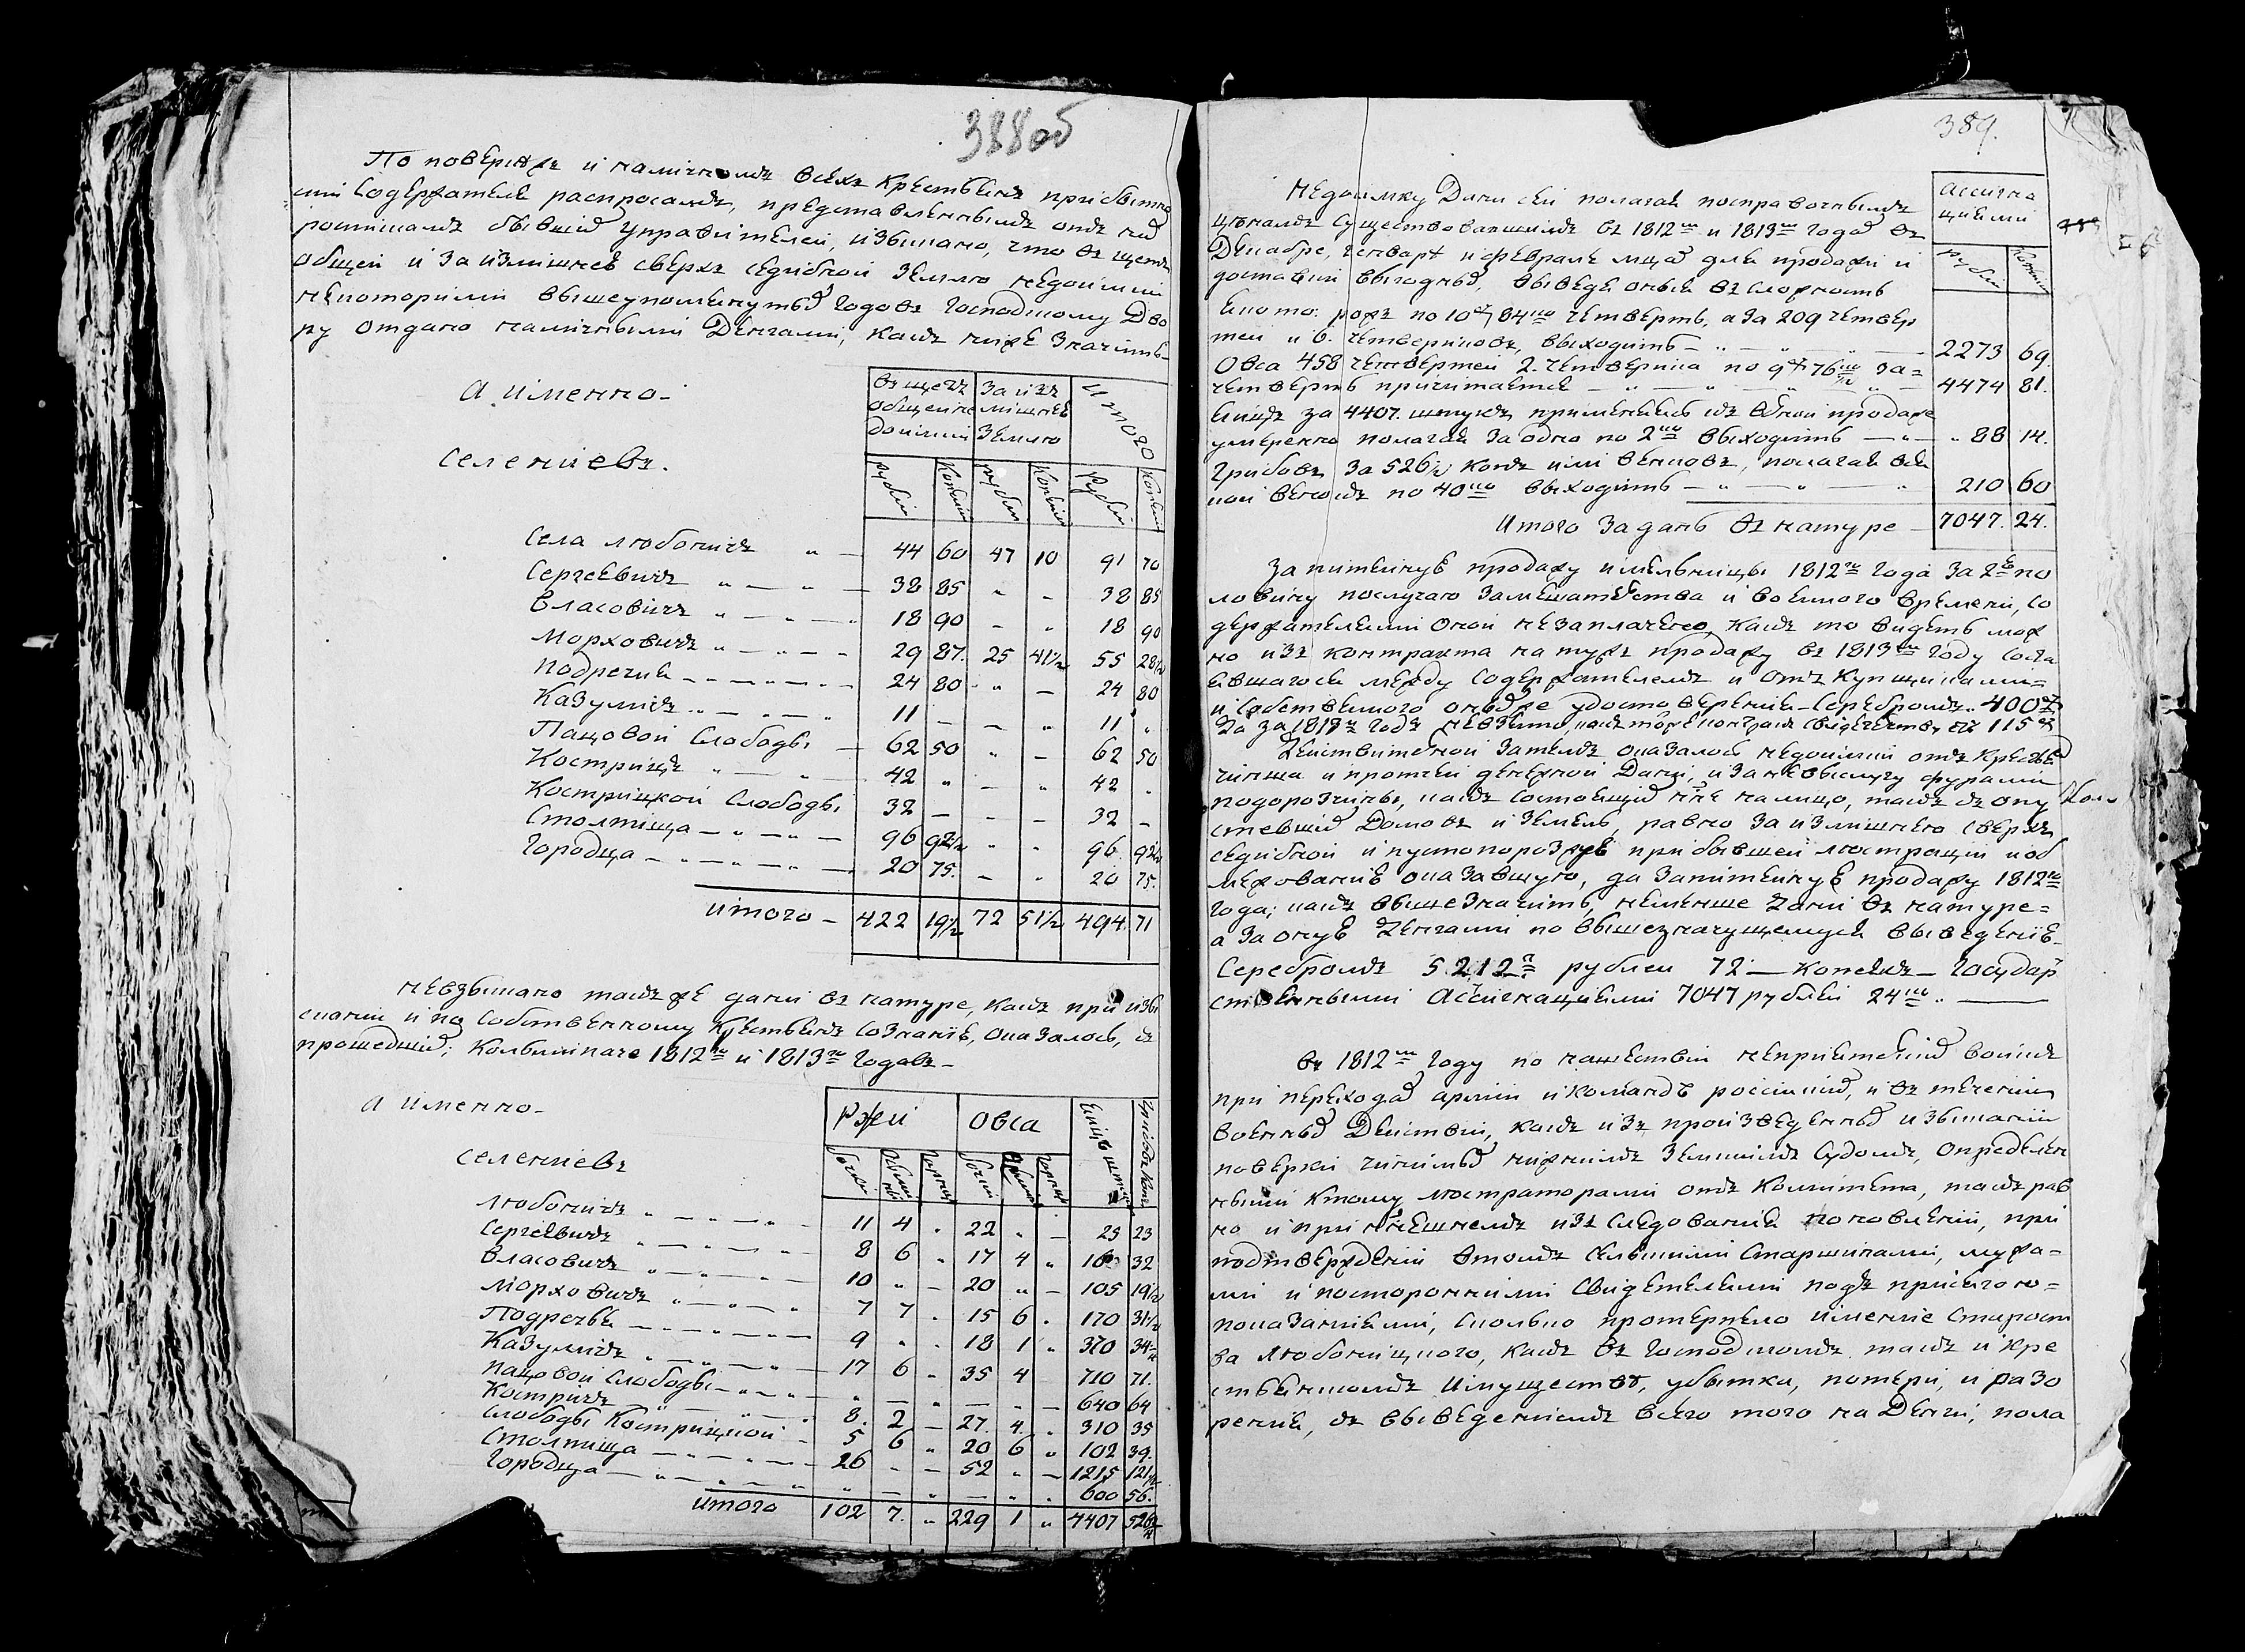 388 об
По поверке и наличномъ всехъ крестьянъ при бытно
сти Содержателя распросамъ, представленнымъ отъ нихъ
росписямъ бывшихъ управителей, изыскано, что въ щетъ
общей и за излишнее сверхъ седибной землю недоимки
некоторыми вышеупомянутыхъ годовъ господскому Дво
ру отдано наличными Деньгами, какъ ниже значитъ
А именно
Селениевъ.
въ щетъ общей недоимки | За излишнею землю | Итого
рубли | Копейки | рубли | Копейки | Рубли | Копейки
Села Любоничъ 44 60 47 10 91 70
Сергеевичъ 38 85 " - 38 85
Власовичъ 18 90 - " 18 90
Морховичъ 29 87. 25 41½ 55 28½
Подречья 24 80 " - 24 80
Казуличъ 11 - - " 11 "
Пацовой Слободы 62 50 " - 62 50
Костричъ 42 " - " 42 "
Костри́цкой Слободы 32 - - - 32 -
Столпища 96 92½ " " 96 92½
Городца 20 75. - " 20 75.
итого 422 19½ 72 51½ 494 71
Невзыскано такъ же дани въ натуре, какъ при изы
скании и по собственному крестьянъ сознание, оказалось, за
прошедший, 1812го и 1813го годовъ
А именно
Селениевъ
Ржи | Овса | Яицъ штукъ | Грибовъ Копъ
бочки | Осьмины | Гарнцы | бочки | Осьмины | Гарнцы
Любоничъ 11 4 " 22 " - 25 23
Сергеевичъ 8 6 " 17 4 " 160 32
Власовичъ 10 " - 20 " - 105 19½
Морховичъ 7 7 " 15 6 " 170 31½
Подречья 9 " " 18 1 " 370 34½
Казуличъ 17 6 " 35 4 710 71.
Пацовой Слободы " - " - " - 640 64
Костричъ 8. 2 - 27. 4. " 310 35
Слободы Кострицкой 5 6 " 20 6 " 102 39.
Столпища 26 " - 52 " - 1215 121½
Городца " - " - " " 600 56.
итого 102 7. " 229 1 " 4407 526½
389.
Ассигнациями
Рубли | Копейки
Недоимку Дани сей полагая посправочнымъ
ценамъ существовавшимъ въ 1812мъ и 1813мъ годахъ въ
Декабре, Генваре и Феврале мцахъ для продажи и
доставки выгодныхъ, выведе оныя въ сложность
Якото: ржи по 10 84ко четверть, а за 209 четвер
тей и 6. четвериковъ, выходитъ 2273 69.
Овса 458 четвертей 2. четверика по 9 76ко за
четверть причитается 4474 81.
Яицъ за 4407. штукъ применяясь къ вбной продаже
умеренно полагая за одно по 2ко выходитъ " 88 14.
Грибовъ за 526½ копъ или венковъ, полагая вся
кой венокъ по 40ко выходитъ 210 60
Итого за дань въ натуре 7047. 24.
За питейную продажу и мельницы 1812го года за 2ю по
ловину послучаю замешательства и военного времени, со
держателями оной незаплачено, какъ то видеть мож
но изъ контракта на туже продажу въ 1813мъ году соста
явшагося между содержателемъ и откупщиками
и собственного онаже удостоверения Серебромъ 400
Да за 1813й годъ невзято, какъ тоже контракт свидетельствуетъ 115
Действительной затемъ оказалось недоимки отъ крестьянъ
чинша и протчей денежной Дани, и за невыслугу фурами
подорожчины, какъ состоящихъ нне налицо, такъ съ опу
стевшихъ Домовъ и Земель, равно за излишнею сверхъ
седибной и пустопорозжуе при бывшей люстрации и об
межованию оказавшуюся, да за питейную продажу 1812го
года; какъ выше значитъ, неменше Дани въ натуре
а за оную Деньгами по вышезначущемуся выведению
Серебромъ 5212 рублей 72 копейкъ Государ
ственными Ассигнациями 7047 рублей 24ко
Въ 1812мъ году по нашествии неприятелскихъ войскъ
при переходахъ армии и командъ российскихъ, и въ течении
военныхъ Действий, какъ изъ произведенныхъ изысканий
поверки чинимыхъ нижнимъ Земскимъ Судомъ, определен
ными ктому люстраторами отъ Комитета, такъ рав
но и при ннешнемъ изъ следовании поновлении, при
подтверждении втомъ сельскими Старшинами, мужа
ми и посторонними Свидетелями подъ присягою
показаниями, сколько потерпело имение Старост
ва Любоницкого, какъ въ Господскомъ такъ и кре
стьянскомъ имуществе, убытка, потери, и разо
рения, съ выведениемъ всего того на Деньги, пола